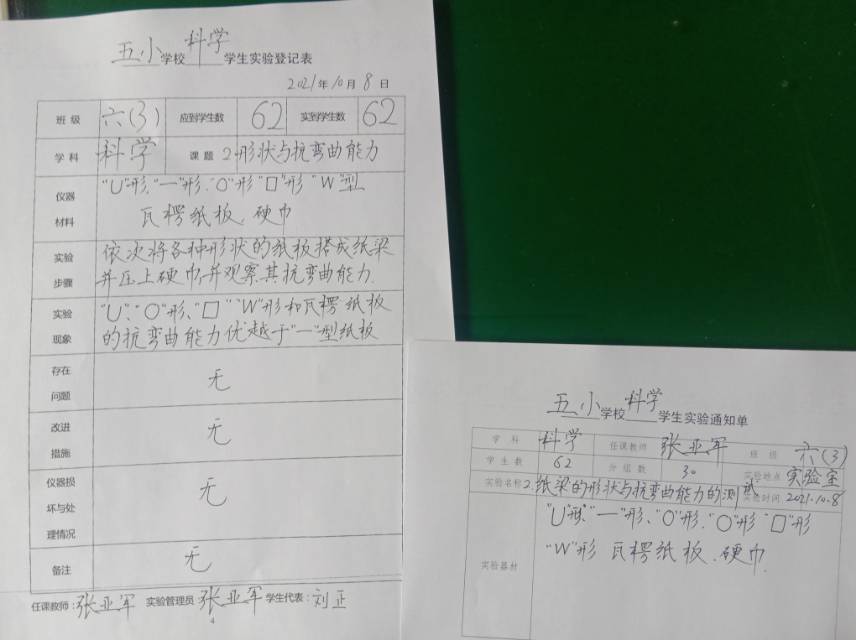 五小学校科学学生实验登记表
2021年10月8日
班级 六(3) 应到学生数 62 实到学生数 62
学科 科学 课题 2.形状与抗弯曲能力
仪器材料 "U"形."一"形."O"形"口"形"W"型
瓦楞纸板、硬巾
实验步骤 依次将各种形状的纸板搭成纸梁
并压上硬巾,并观察其抗弯曲能力.
实验现象 "U"、"O"形、"口""W"形和瓦楞纸板
的抗弯曲能力优越于"一"型纸板
存在问题 无
改进措施 无
仪器损坏与处理情况 无
备注 无
任课教师:张亚军 实验管理员:张亚军 学生代表:刘正
4
五小学校科学学生实验通知单
学科 科学 任课教师 张亚军 班级 六(3)
学生数 62 分组数 30 实验地点 实验室
实验名称 2.纸梁的形状与抗弯曲能力的测试 实验时间 2021.10.8
实验器材 "U"形"一"形、"O"形."O"形"口"形
"W"形 瓦楞纸板.硬巾.